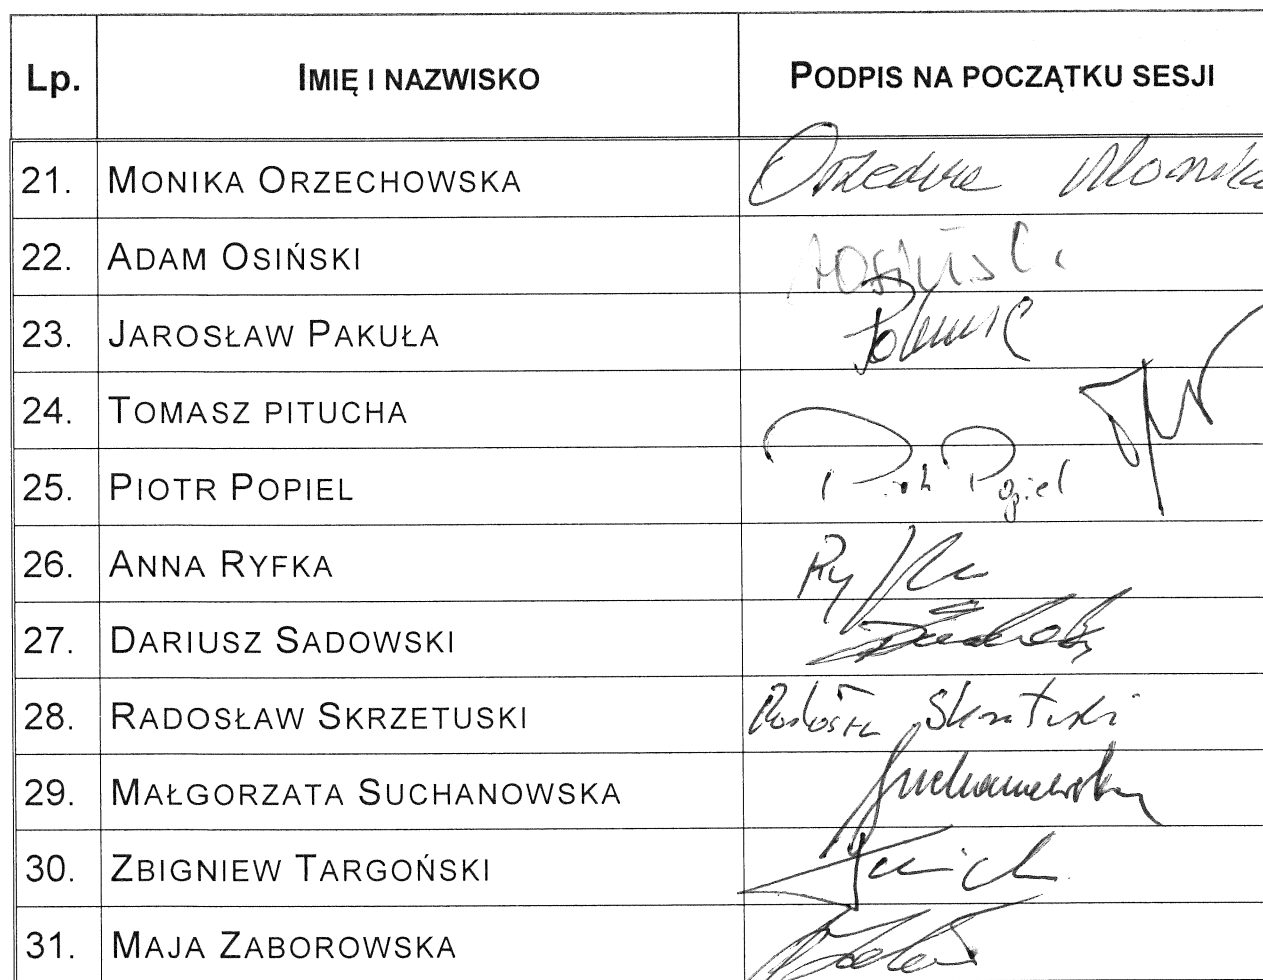 Lp. IMIĘ I NAZWISKO PODPIS NA POCZĄTKU SESJI
21. MONIKA ORZECHOWSKA
22. ADAM OSIŃSKI
23. JAROSŁAW PAKUŁA
24. TOMASZ PITUCHA
25. PIOTR POPIEL Piotr Popiel
26. ANNA RYFKA
27. DARIUSZ SADOWSKI
28. RADOSŁAW SKRZETUSKI
29. MAŁGORZATA SUCHANOWSKA Suchanowska
30. ZBIGNIEW TARGOŃSKI
31. MAJA ZABOROWSKA